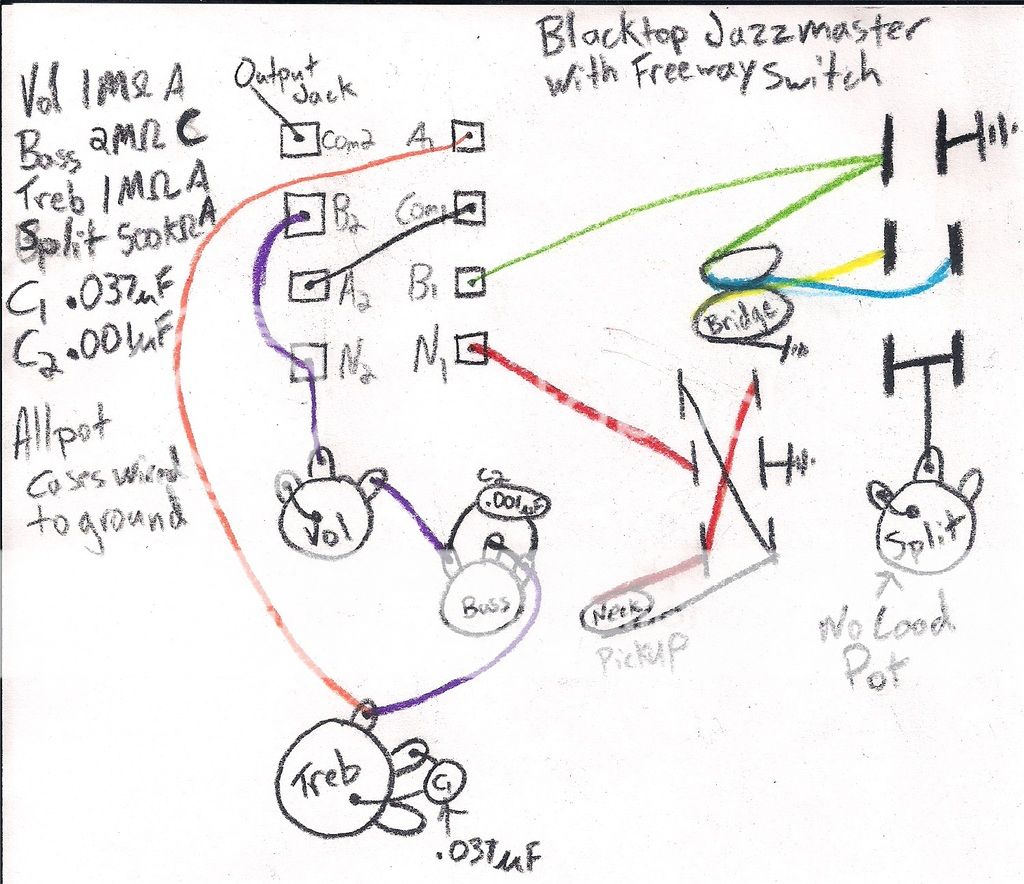 Blacktop Jazzmaster
with Freeway Switch
Vol 1MΩ A
Bass 2MΩ C
Treb 1MΩ A
Split 500KΩ A
C1 .037uF
C2 .001uF
All pot
cases wired
to ground
Output
Jack
Com2 A1
B2 Com1
A2 B1
N2 N1
Bridge
Vol
C2
.001uF
Bass
Neck
Pickup
Split
No Load
Pot
Treb
C1
.037uF